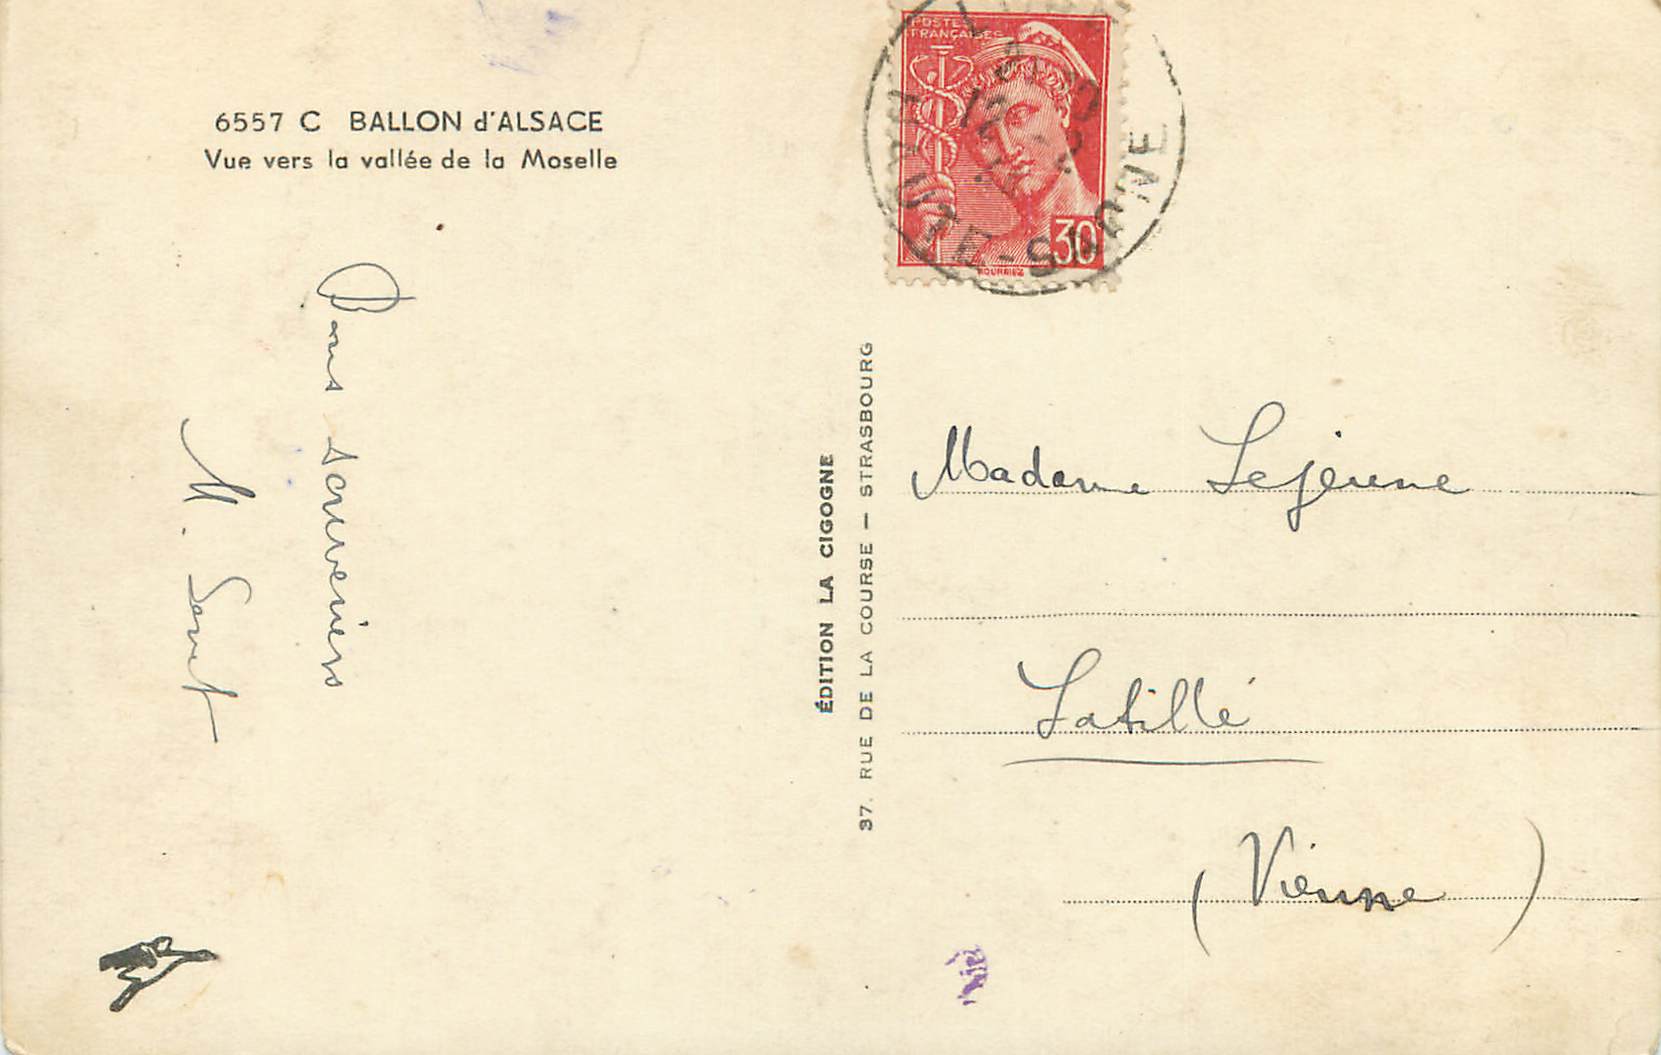 6557 C BALLON d'ALSACE
Vue vers la vallée de la Moselle
Bons souvenirs
M.
ÉDITION LA CIGOGNE
37, RUE DE LA COURSE — STRASBOURG
POSTES
FRANÇAISES
30
MOURRIEZ
HAUTE-SAONE
Madame Lejeune
Latillé
(Vienne)